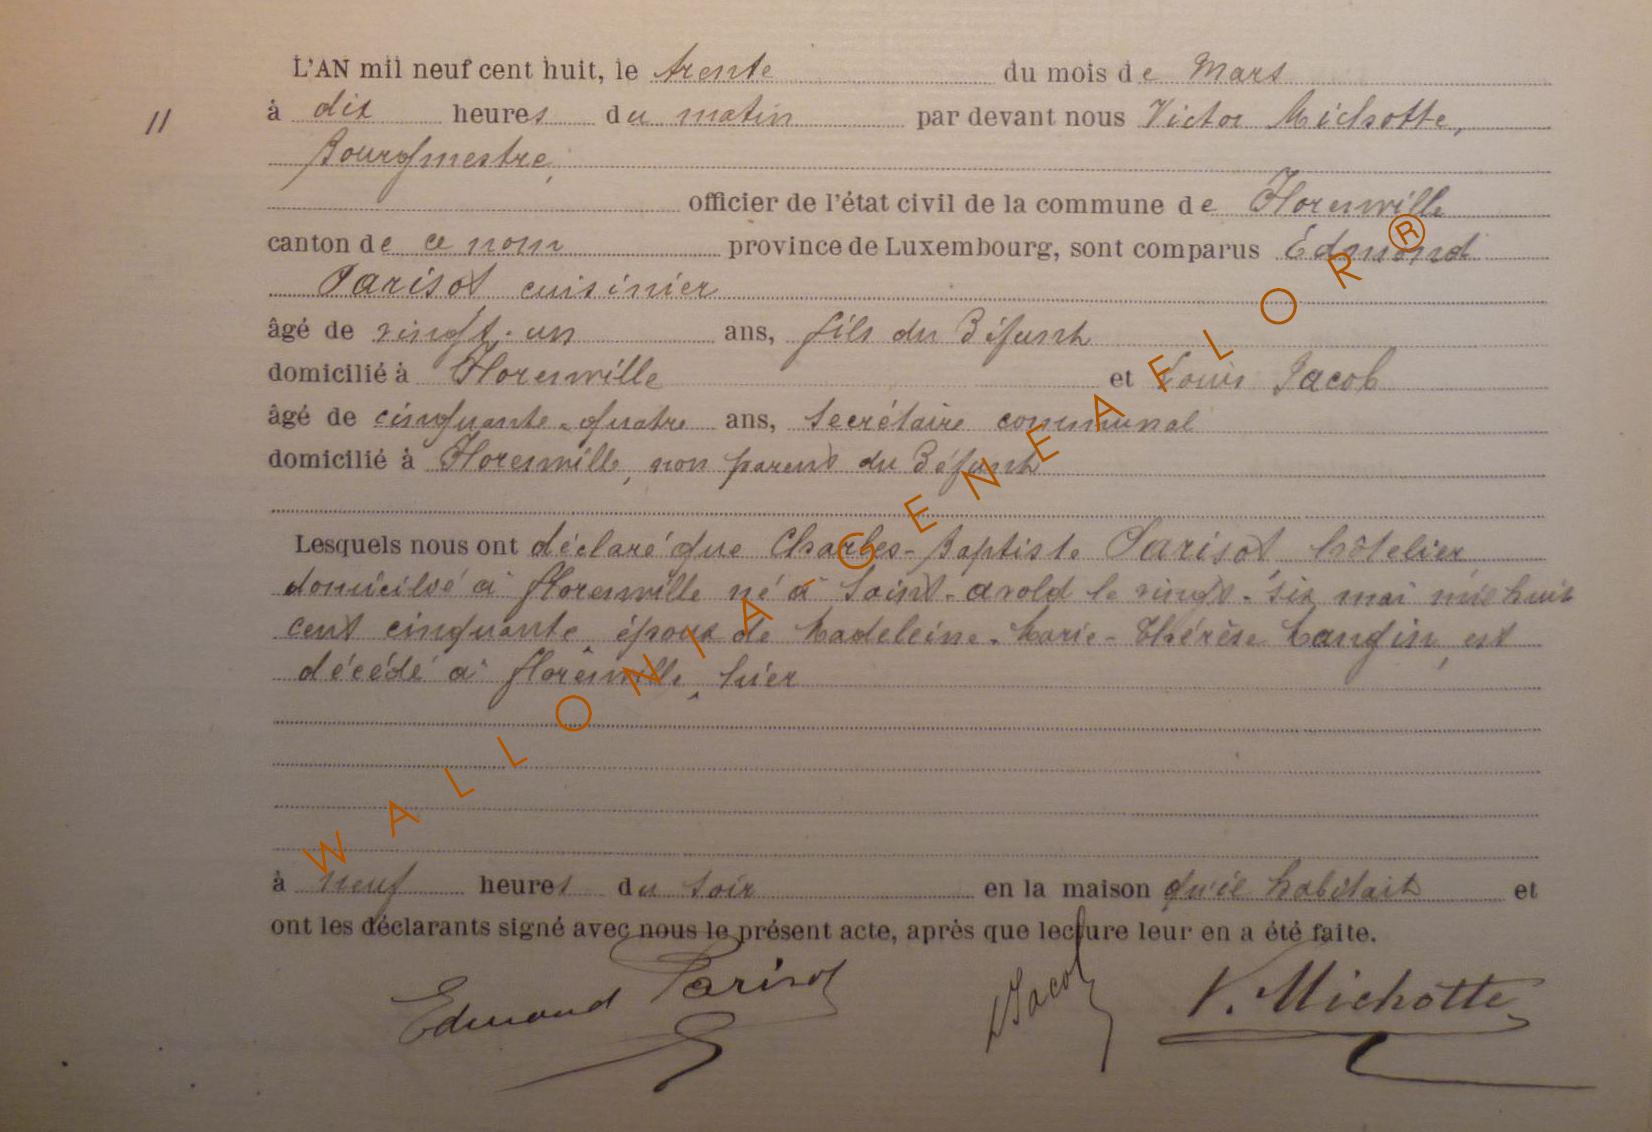 L'AN mil neuf cent huit, le trente du mois de Mars
11 à dix heures du matin par devant nous Victor Michotte,
Bourgmestre,
officier de l'état civil de la commune de Florenville
canton de ce nom province de Luxembourg, sont comparus Edmond
Parisot, cuisinier
âgé de vingt-un ans, fils du Défunt
domicilié à Florenville et Louis Jacob
âgé de cinquante-quatre ans, Secrétaire communal
domicilié à Florenville, non parent du Défunt
Lesquels nous ont déclaré que Charles-Baptiste Parisot, hôtelier
domicilié à Florenville né à Saint-avold le vingt-six mai mil huit
cent cinquante époux de Madeleine-Marie-Thérèse Mangin, est
décédé à Florenville, hier
à neuf heures du soir en la maison qu'il habitait et
ont les déclarants signé avec nous le présent acte, après que lecture leur en a été faite.
Edmond Parisot LJacob V. Michotte
WALLONIA-GENEAFLOR®